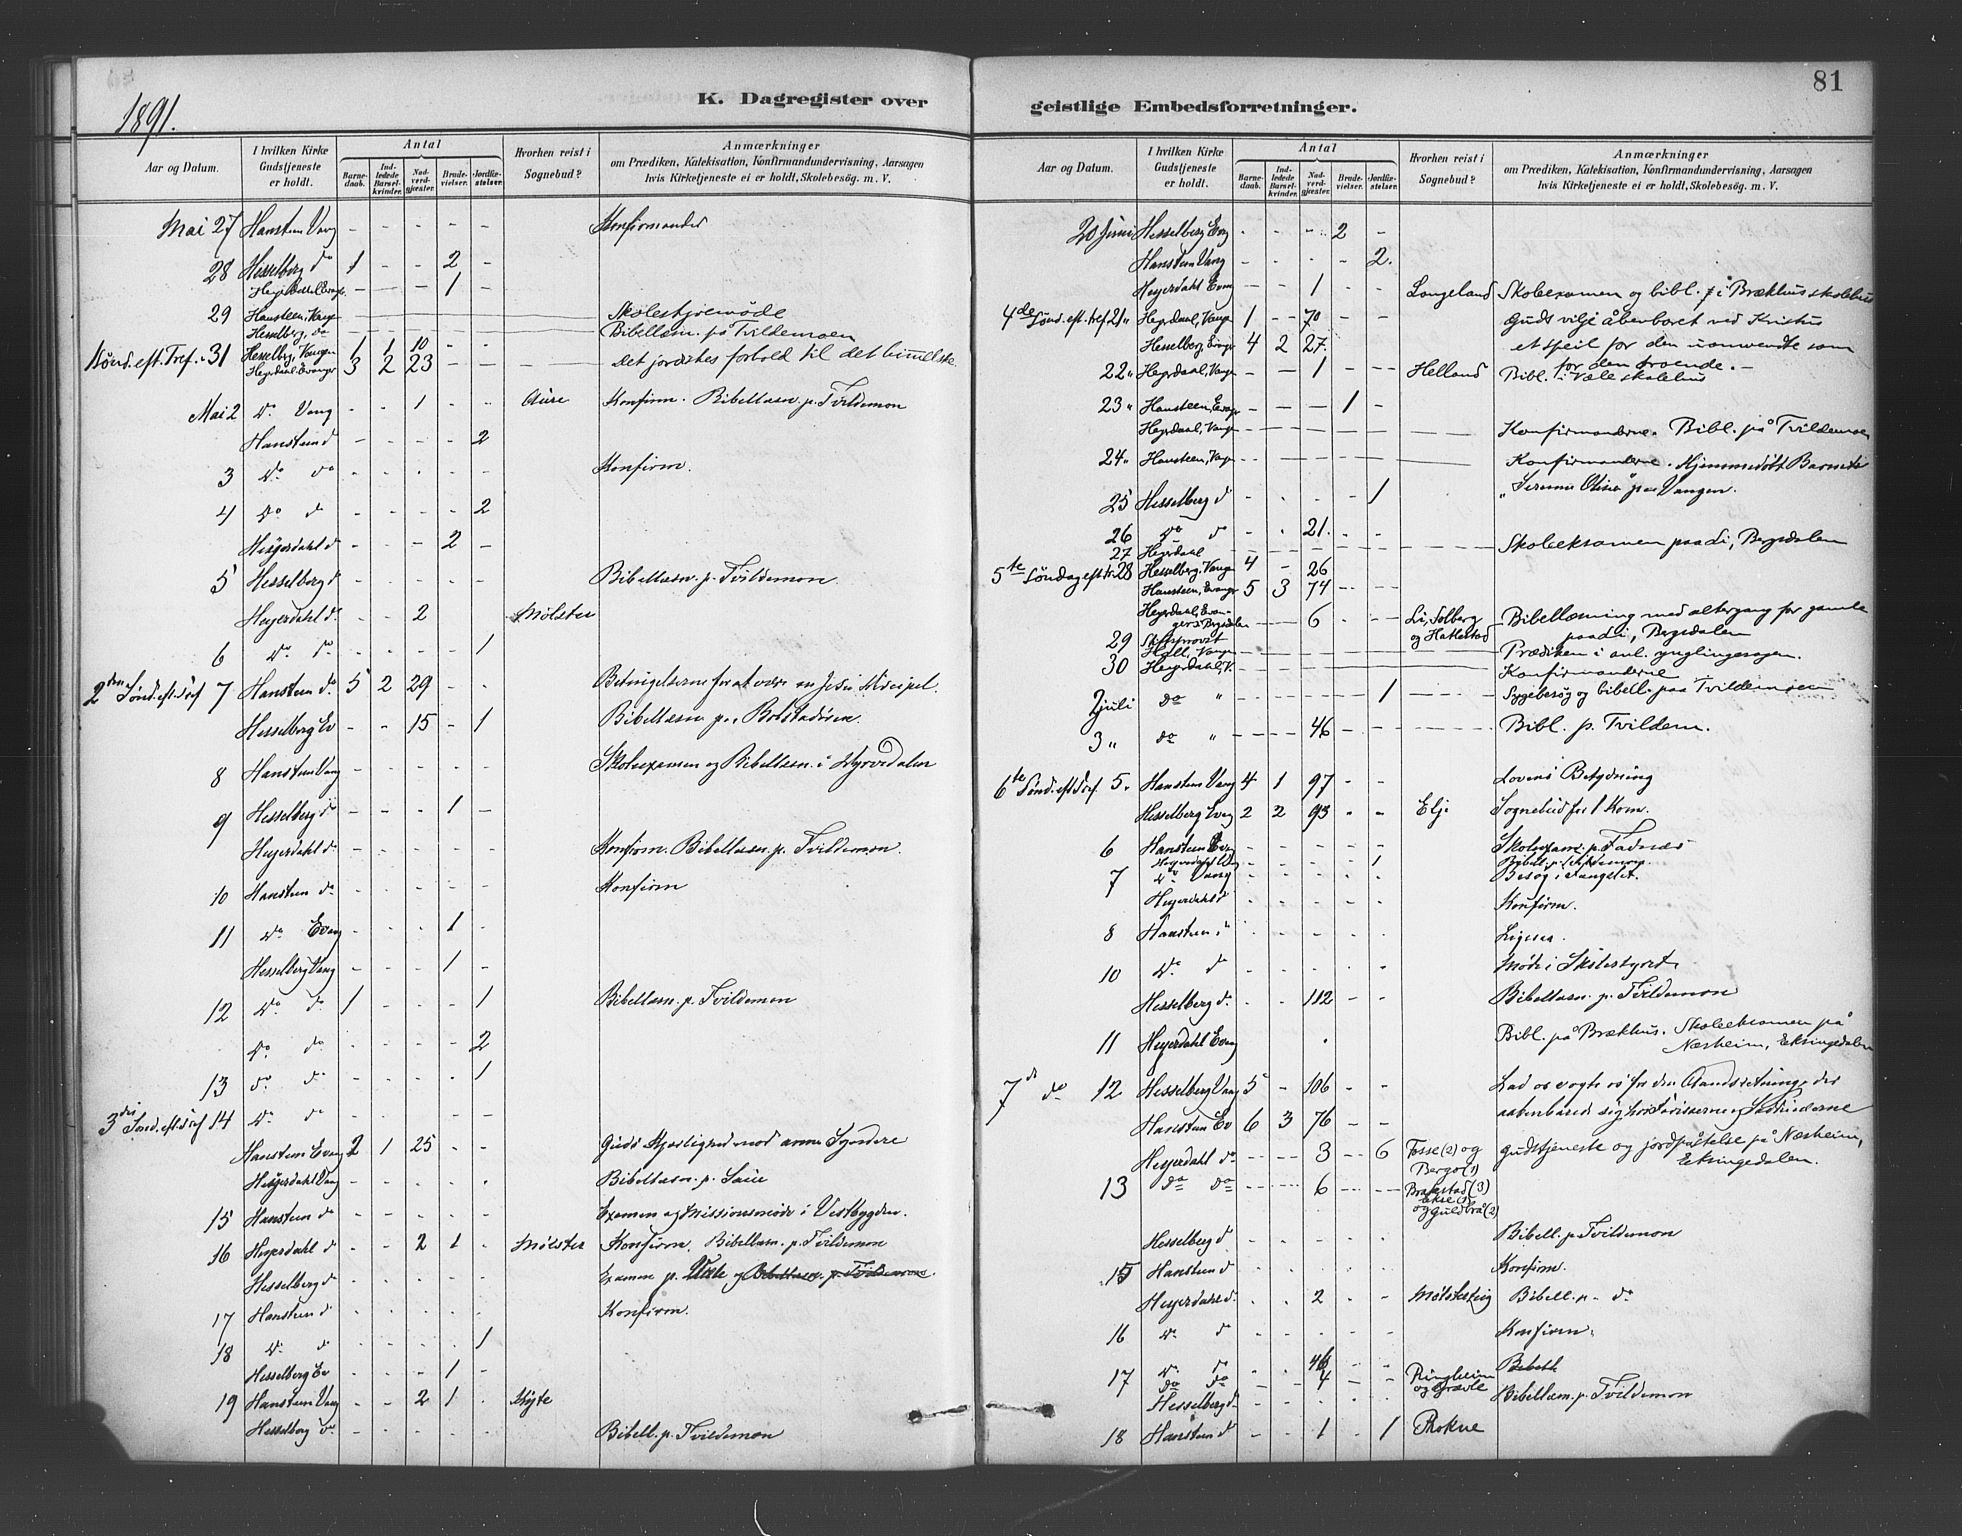 81
1891.
K. Dagregister over
geistlige Embedsforretninger.
Aar og Datum.
I hvilken Kirke Gudstjeneste er holdt.
Antal
Barne-daab.
Ind-ledede Barsel-kvinder.
Nad-verd-gjæster.
Brude-vielser.
Jordfæ-stelser.
Hvorhen reist i Sognebud?
Anmærkninger
om Prædiken, Katekisation, Konfirmandundervisning, Aarsagen
hvis Kirketjeneste ei er holdt, Skolebesøg. m. V.
Mai 27 Hansteen Vang - - - - - Konfirmander
28 Hesselberg do 1 - - 2 -
- - - 1 -
29 Hansteen, Vang Skolestyremøde
Hesselberg, do Bibellæsn. på Tvildemoen
Sønd. eft. Tref. 31 Hesselberg, Vangen 1 1 10 - -
Heyerdaal, Evanger 3 2 23 - - Det jordiskes forhold til det himmelske.
Mai 2 do Vang - - 1 - - Aure Konfirm. Bibellæsn. p. Tvildemon
Hansteen d - - - - 2
3 do do - - - - - Konfirm.
4 do d - - - - 2
Heyerdahl d - - - 2 -
5 Hesselberg d - - - - - Bibellæsn. p. Tvildemon
Heyerdahl d. - - 2 - - Mølster
6 do do - - - - 1
2den Sønd. eft. Tref 7 Hansteen do 5 2 29 - - Betingelserne for at være en Jesu Discipel.
Hesselberg Ev - - 15 - 1 Bibellæsn p. Bolstadøren.
8 Hansteen Vang - - - - - Skoleexamen og Bibellæsn. i Hyrvedalen
9 Hesselberg d - - - 1 -
Heyerdahl d - - - - - Konfirm. Bibellæsn. p. Tvildemon.
10 Hansteen do - - - - - Konfirm
11 do Evang - - - 1 -
Hesselberg Vang - - - 1 -
12 do do 1 - - - 1 Bibellæsn. p. Tvildemon
do do - - - - 2
13 do do - - - - 1
3die Sønd. eft Tref 14 do do - - - - -
Hansteen Evang 2 1 25 - - Guds Kjærlighed mod arme Syndere
Heyerdahl Vang - - - - - Bibellæsn. p.
15 Hansteen do - - - - - Examen og Missionsmøde i Vestbygden.
16 Heyerdahl d - - 2 1 - Mølster Konfirm. Bibellæsn. p. Tvildemon
Hesselberg d - - - - - Examen p. og Bibellæsn. p. Tvildemon.
17 Hansteen d - - - - - Konfirm.
18 do do - - - - 1
Hesselberg Ev - - - 1 -
19 Hansteen Vang - - 2 1 - Kyte
Hesselberg do - - - - - Bibell. p. Tvildemon
Aar og Datum.
I hvilken Kirke Gudstjeneste er holdt.
Antal
Barne-daab.
Ind-ledede Barsel-kvinder.
Nad-verd-gjæster.
Brude-vielser.
Jordfæ-stelser.
Hvorhen reist i Sognebud?
Anmærkninger
om Prædiken, Katekisation, Konfirmandundervisning, Aarsagen
hvis Kirketjeneste ei er holdt, Skolebesøg. m. V.
20 Juni Hesselberg Evg - - - 2 -
Hansteen Vang 2.
Heyerdahl Evang - - 1 - - Longeland Skoleexamen og bibl. på i Brækhus skolehus
4de Sønd. eft. Tref. 21 " Heyerdaal, Vangen 1 - 70 - - Guds vilje åbenbaret ved Kristus
Hesselberg, Evanger 4 2 27. et speil for den uomvendte som
for den troende. -
22 " Heyerdaal, Vangen - - 1 - - Helland Bibl. i skolehus
23 " Hansteen, Evanger - - - 1 -
Heyerdaal, Vangen - - - - - Konfirmanderne. Bibl. på Tvildemoen
24 " Hansteen, Vangen - - - - - Konfirmanderne. Hjemmedøbt Barnets
25 Hesselberg d - - - - 1 " paa Vangen.
26 do d - - 21. - -
27 Heyerdaal Skoleeksamen paa Li, Bergsdalen
5te Søndag eft. tr. 28 Hesselberg, Vangen 4 - 26
Hansteen, Evanger 5 3 74 - -
Heyerdaal, Evangers Bergsdalen - - 6 - - Li, Solberg og Hatlestad Bibellæsning med altergang for gamle
paa Li, Bergsdalen
29 Stiftsprovst Hall, Vangen Prædiken i anl. ynglingesagen.
30 Heyerdahl, V. Konfirmanderne
2 juli do " - - - - 1 Sygebesøg og bibell. paa Tvildemoen
3 " do " - - 46 - - Bibl. p. Tvildem.
6te Sønd. eft Tref 5. Hansteen Vang 4 1 97 - - Lovens Betydning
Hesselberg Evang 2 2 93 - - Elje Sognebud for 1 Kom.
6 Hansteen Evang - - - - - Skoleexam. p. Fadnæs
- - - - 1 Bibell. p. Tvildemon
7 do Vang - - - - - Besøg i Fængslet.
Heyerdahl d - - - - - Konfirm.
8 Hansteen " - - - - - Ligesaa.
10 do d - - - - - Møde i Skolestyret
Hesselberg d. - - 112 - - Bibellæsn. p. Tvildemon
11 Heyerdahl Evang Bibl. på Brækhus. Skoleeksamen på
Næsheim, Eksingedalen
7de do 12 Hesselberg Vang 5 - 106 - - Lad os vogte os for den Aandsretning der
Hansteen Ev 6 3 76 - - aabenbarede sig hos Farisæerne og Saddukæerne
Heyerdahl do - - 3 - 6 Fosse (2) og Bergo (1) Gudstjeneste og jordpåkastelse på Næsheim,
Eksingedalen.
13 do do - - 6 - - Brakestad (3) Ekse (1) og Guldbrå (2)
Hesselberg d - - - - - Bibell. p. Tvildemon
15 Hansteen d - - - - - Konfirm.
Heyerdahl d. - - 2 - - Bibell. p. do
16 do d - - - - - Konfirm.
17 do do - - 46 - - Bibell
do do - - 4 - - Ringheim og Græve
Hesselberg d - - - - - Bibellæsn. p. Tvildemon
18 Hansteen d - - 1 - 1 Rokne